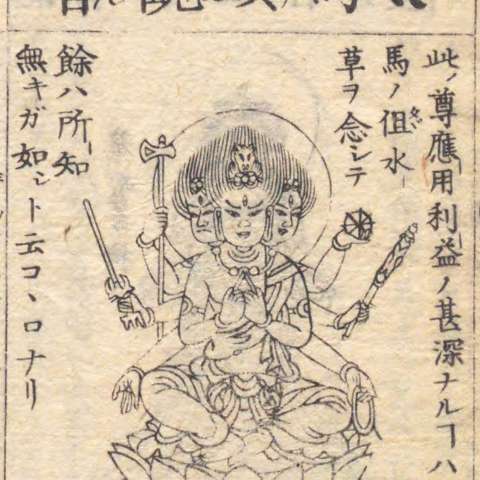 此ノ尊應用利益ノ甚深ナルヿハ
馬ノ俎水
草ヲ念シテ
餘ハ所知
無キガ如シト云コヽロナリ